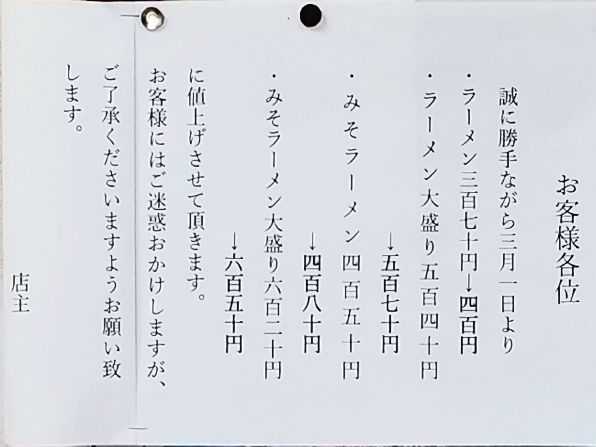 お客様各位
誠に勝手ながら三月一日より
・ラーメン三百七十円→四百円
・ラーメン大盛り五百四十円
→五百七十円
・みそラーメン四百五十円
→四百八十円
・みそラーメン大盛り六百二十円
→六百五十円
に値上げさせて頂きます。
お客様にはご迷惑おかけしますが、
ご了承くださいますようお願い致
します。
店主